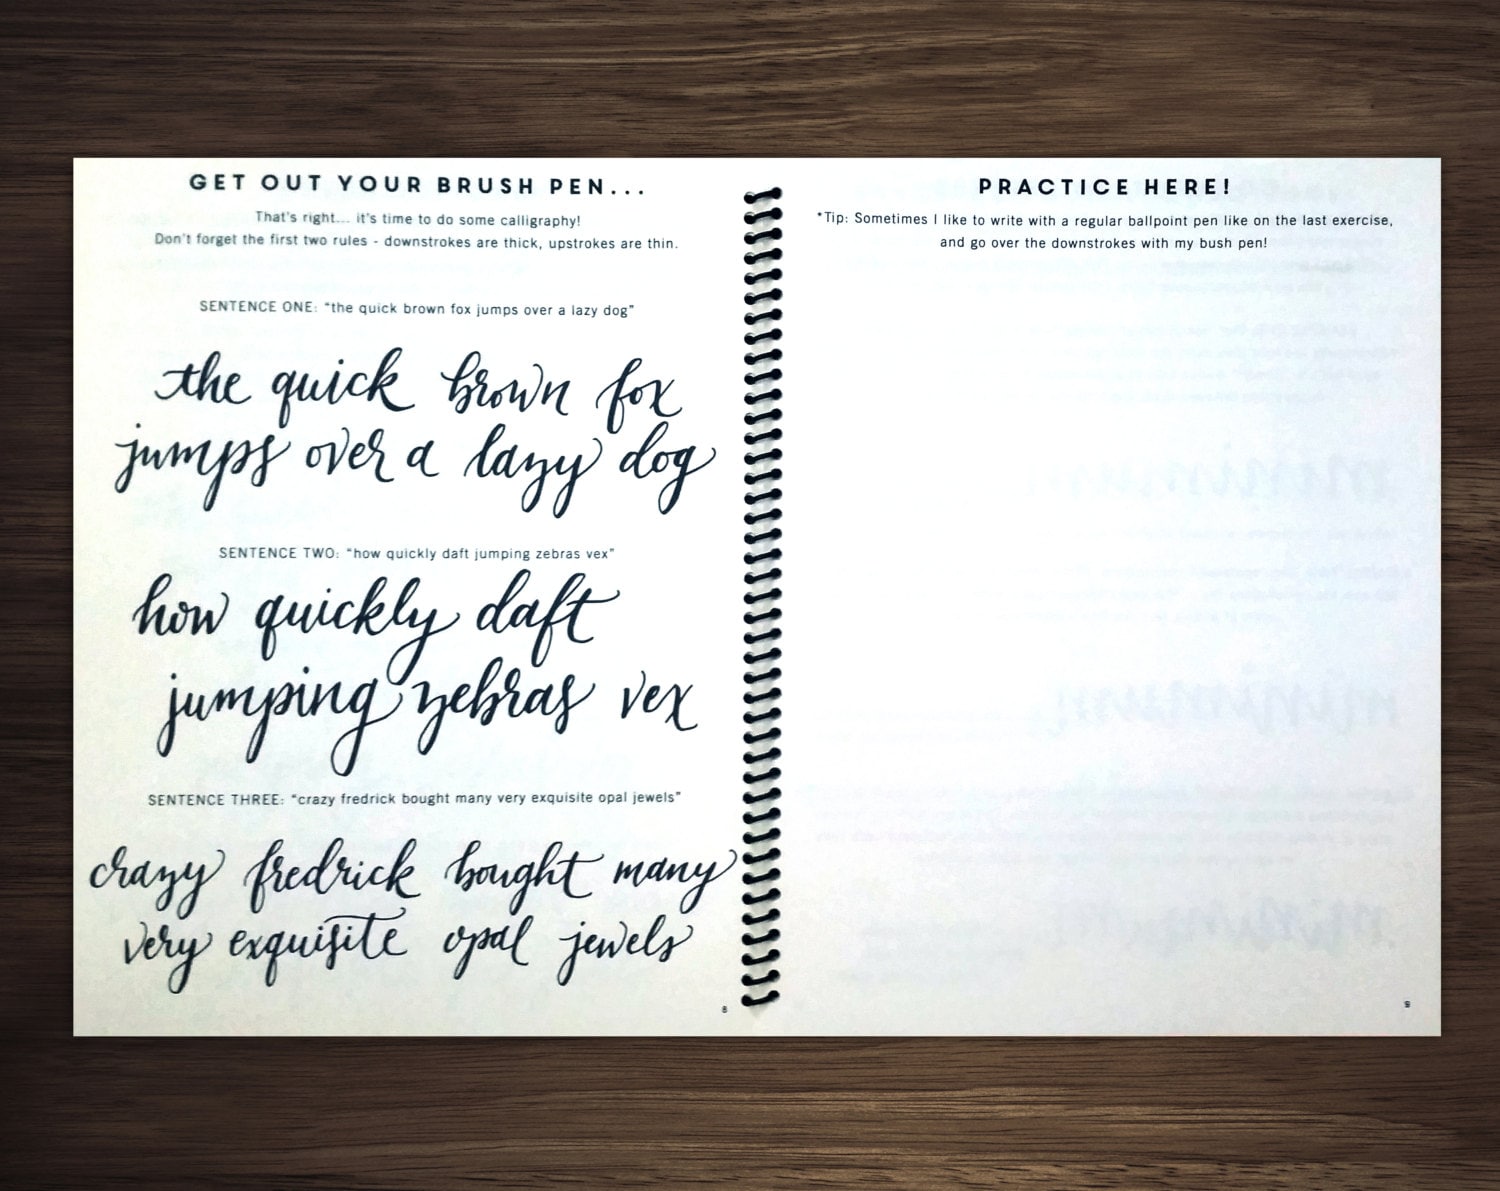 GET OUT YOUR BRUSH PEN...
That's right... it's time to do some calligraphy!
Don't forget the first two rules - downstrokes are thick, upstrokes are thin.
SENTENCE ONE: "the quick brown fox jumps over a lazy dog"
the quick brown fox
jumps over a lazy dog
SENTENCE TWO: "how quickly daft jumping zebras vex"
how quickly daft
jumping zebras vex
SENTENCE THREE: "crazy fredrick bought many very exquisite opal jewels"
crazy fredrick bought many
very exquisite opal jewels
8
PRACTICE HERE!
*Tip: Sometimes I like to write with a regular ballpoint pen like on the last exercise,
and go over the downstrokes with my bush pen!
9